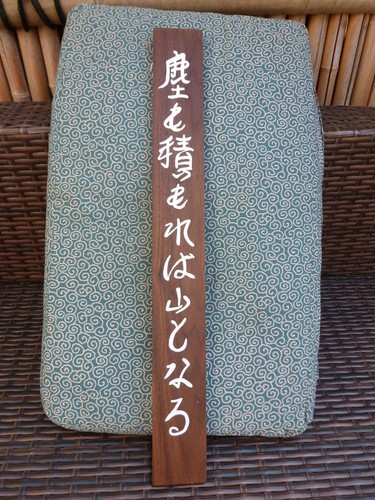 塵も積もれは山となる